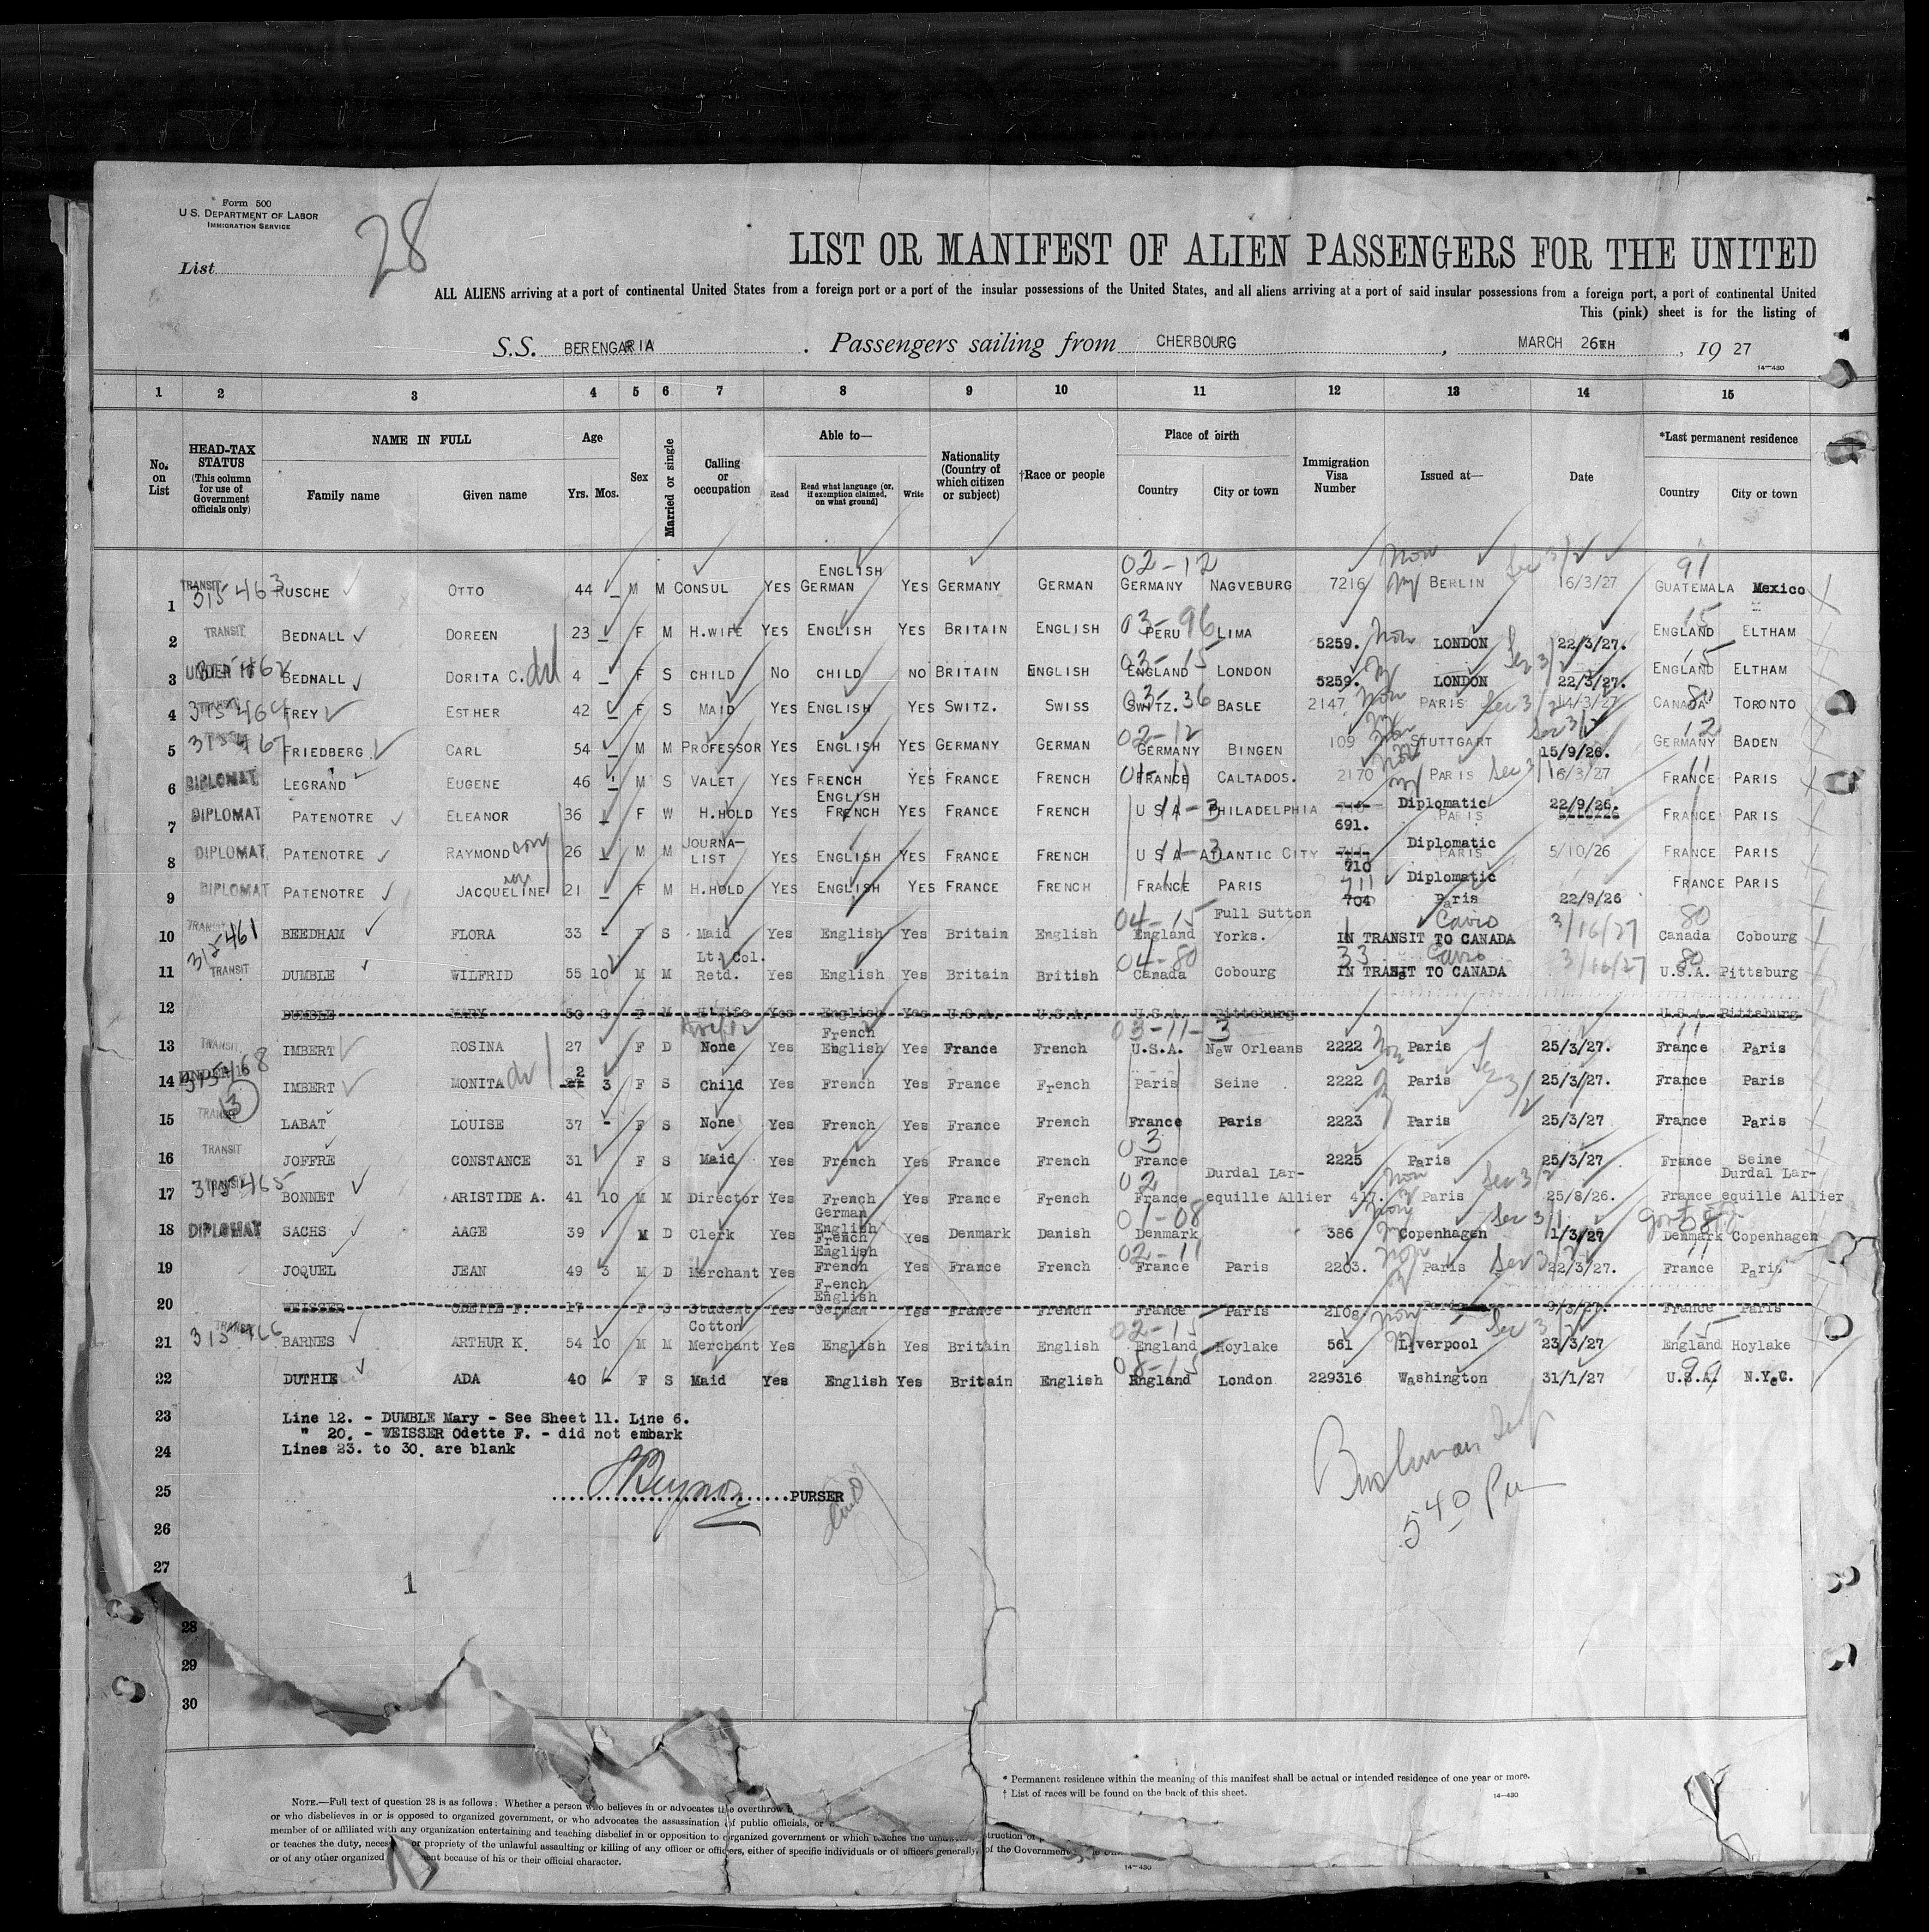 Form 500
U.S. DEPARTMENT OF LABOR
IMMIGRATION SERVICE
28
List
LIST OR MANIFEST OF ALIEN PASSENGERS FOR THE UNITED
ALL ALIENS arriving at a port of continental United States from a foreign port or a port of the insular possessions of the United States, and all aliens arriving at a port of said insular possessions from a foreign port, a port of continental United
This (pink) sheet is for the listing of
S.S. BERENGARIA . Passengers sailing from CHERBOURG , MARCH 26TH , 19 27
14—430
1 2 3 4 5 6 7 8 9 10 11 12 13 14 15
No. on List HEAD-TAX STATUS (This column for use of Government officials only) NAME IN FULL Family name Given name Age Yrs. Mos. Sex Married or single Calling or occupation Able to— Read Read what language (or, if exemption claimed, on what ground) Write Nationality (Country of which citizen or subject) †Race or people Place of birth Country City or town Immigration Visa Number Issued at— Date *Last permanent residence Country City or town
1 TRANSIT 315463 RUSCHE OTTO 44 – M M CONSUL YES ENGLISH GERMAN YES GERMANY GERMAN 02-12 GERMANY NAGVEBURG 7216 BERLIN Sec 3/2 16/3/27 91 GUATEMALA Mexico
2 TRANSIT BEDNALL DOREEN 23 – F M H.WIFE YES ENGLISH YES BRITAIN ENGLISH 03-96 PERU LIMA 5259. LONDON 22/3/27. 15 ENGLAND ELTHAM
3 UNDER 16 BEDNALL DORITA C. 4 – F S CHILD NO CHILD NO BRITAIN ENGLISH 03-15 ENGLAND LONDON 5259. LONDON Sec 3/2 22/3/27. 15 ENGLAND ELTHAM
4 TRANSIT 315464 FREY ESTHER 42 – F S MAID YES ENGLISH YES SWITZ. SWISS 03-36 SWITZ. BASLE 2147 PARIS Sec 3/2 14/3/27 80 CANADA TORONTO
5 315467 FRIEDBERG CARL 54 – M M PROFESSOR YES ENGLISH YES GERMANY GERMAN 02-12 GERMANY BINGEN 109 STUTTGART Sec 3/2 15/9/26. 12 GERMANY BADEN
6 DIPLOMAT LEGRAND EUGENE 46 M S VALET YES FRENCH YES FRANCE FRENCH 01-11 FRANCE CALTADOS. 2170 PARIS Sec 3/ 16/3/27 11 FRANCE PARIS
7 DIPLOMAT PATENOTRE ELEANOR 36 – F W H.HOLD YES ENGLISH FRENCH YES FRANCE FRENCH USA 11-3 PHILADELPHIA 691. Diplomatic PARIS 22/9/26. FRANCE PARIS
8 DIPLOMAT PATENOTRE RAYMOND 26 – M M JOURNA-LIST YES ENGLISH YES FRANCE FRENCH USA 11-3 ATLANTIC CITY 710 Diplomatic PARIS 5/10/26 FRANCE PARIS
9 DIPLOMAT PATENOTRE JACQUELINE 21 – F M H.HOLD YES ENGLISH YES FRANCE FRENCH FRANCE PARIS 711 704 Diplomatic Paris 22/9/26 FRANCE PARIS
10 TRANSIT 315461 BEEDHAM FLORA 33 - F S Maid Yes English Yes Britain English 04-15 England Full Sutton Yorks. IN TRANSIT TO CANADA 3/16/27 80 Canada Cobourg
11 TRANSIT DUMBLE WILFRID 55 10 M M Lt. Col. Retd. Yes English Yes Britain British 04-80 Canada Cobourg 33 IN TRANSIT TO CANADA 3/16/27 80 U.S.A. Pittsburg
12 DUMBLE MARY 50 F M H.Wife Yes English Yes U.S.A. U.S.A. U.S.A. Pittsburg U.S.A. Pittsburg
13 TRANSIT IMBERT ROSINA 27 F D None Yes French English Yes France French 03-11-3 U.S.A. New Orleans 2222 Paris 25/3/27. 11 France Paris
14 UNDER 16 315468 IMBERT MONITA 2 3 F S Child Yes French Yes France French Paris Seine 2222 Paris Sec 3/2 25/3/27. France Paris
15 TRANSIT 3 LABAT LOUISE 37 - F S None Yes French Yes France French France Paris 2223 Paris 25/3/27 France Paris
16 TRANSIT JOFFRE CONSTANCE 31 F S Maid Yes French Yes France French 03 France 2225 Paris 25/3/27 France Seine
17 TRANSIT 315465 BONNET ARISTIDE A. 41 10 M M Director Yes French Yes France French 02 France Durdal Lar-equille Allier 417. Paris Sec 3/2 25/8/26. France Durdal Lar-equille Allier
18 DIPLOMAT SACHS AAGE 39 M D Clerk Yes German English French Yes Denmark Danish 01-08 Denmark 386 Copenhagen Sec 3/1 1/3/27 08 Denmark Copenhagen
19 JOQUEL JEAN 49 3 M D Merchant Yes English French Yes France French 02-11 France Paris 2203. Paris Sec 3/2 22/3/27. 11 France Paris
20 WEISSER ODETTE F. 17 F S Student Yes French English German Yes France French France Paris 2108 Paris 9/3/27. France Paris
21 TRANSIT 315466 BARNES ARTHUR K. 54 10 M M Cotton Merchant Yes English Yes Britain English 02-15 England Hoylake 561 Liverpool Sec 3/2 23/3/27 15 England Hoylake
22 DUTHIE ADA 40 - F S Maid Yes English Yes Britain English 08-15 England London 229316 Washington 31/1/27 99 U.S.A. N.Y.C.
23 Line 12. - DUMBLE Mary - See Sheet 11. Line 6.
" 20. - WEISSER Odette F. - did not embark
24 Lines 23. to 30. are blank
25 PURSER
540 Pm
26
27
1
28
29
30
* Permanent residence within the meaning of this manifest shall be actual or intended residence of one year or more.
† List of races will be found on the back of this sheet.
14—430
NOTE.—Full text of question 28 is as follows: Whether a person who believes in or advocates the overthrow b
or who disbelieves in or is opposed to organized government, or who advocates the assassination of public officials, or
member of or affiliated with any organization entertaining and teaching disbelief in or opposition to organized government or which teaches the
or teaches the duty, or propriety of the unlawful assaulting or killing of any officer or officers, either of specific individuals or of officers generally, of the Government
or of any other organized because of his or their official character.
14—430